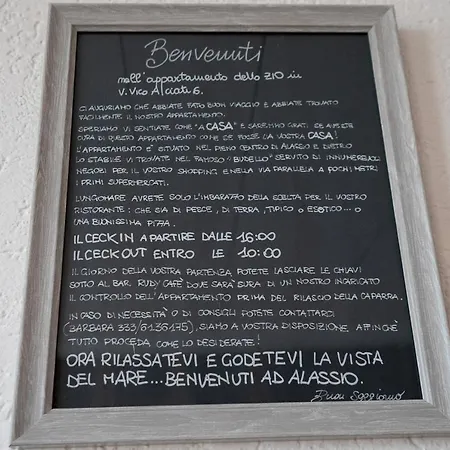 Benvenuti
nell'appartamento dello ZIO in
V. Vico Alciati 6.
CI AUGURIAMO CHE ABBIATE FATTO BUON VIAGGIO E ABBIATE TROVATO
FACILMENTE IL NOSTRO APPARTAMENTO.
SPERIAMO VI SENTIATE COME "A CASA" E SAREMMO GRATI SE AVRETE
CURA DI QUESTO APPARTAMENTO COME SE FOSSE LA VOSTRA CASA!
L'APPARTAMENTO E' SITUATO NEL PIENO CENTRO DI ALASSIO E DIETRO
LO STABILE VI TROVATE NEL FAMOSO "BUDELLO" SERVITO DI INNUMEREVOLI
NEGOZI PER IL VOSTRO SHOPPING E NELLA VIA PARALLELA A POCHI METRI
I PRIMI SUPERMERCATI.
LUNGOMARE AVRETE SOLO L'IMBARAZZO DELLA SCELTA PER IL VOSTRO
RISTORANTE: CHE SIA DI PESCE, DI TERRA, TIPICO O ESOTICO... O
UNA BUONISSIMA PIZZA.
IL CECK IN A PARTIRE DALLE 16:00
IL CECK OUT ENTRO LE 10:00
IL GIORNO DELLA VOSTRA PARTENZA POTETE LASCIARE LE CHIAVI
SOTTO AL BAR RUDY CAFE' DOVE SARA' CURA DI UN NOSTRO INCARICATO
IL CONTROLLO DELL'APPARTAMENTO PRIMA DEL RILASCIO DELLA CAPARRA.
IN CASO DI NECESSITA' O DI CONSIGLI POTETE CONTATTARCI
(BARBARA 333/6136175), SIAMO A VOSTRA DISPOSIZIONE AFFINCHE'
TUTTO PROCEDA COME LO DESIDERATE!
ORA RILASSATEVI E GODETEVI LA VISTA
DEL MARE... BENVENUTI AD ALASSIO.
Buon Soggiorno